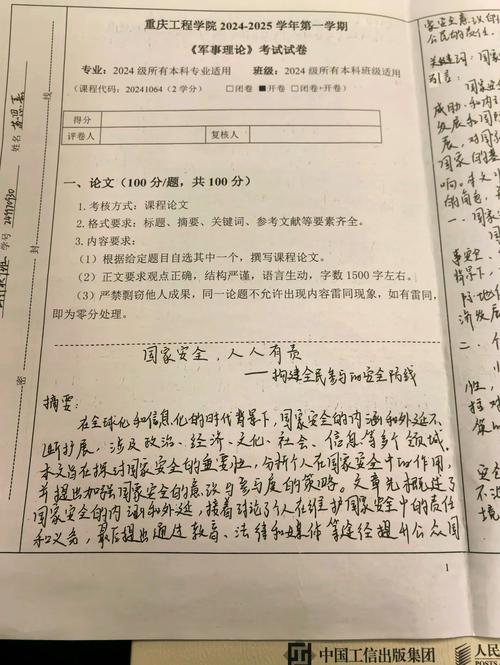 重庆工程学院 2024-2025 学年第一学期
《军事理论》考试试卷
专业：2024 级所有本科专业适用 班级：2024 级所有本科班级适用
（课程代码：20241064（2 学分） □闭卷 ■开卷 □闭卷+开卷）
得分
评卷人 复核人
一、论文（100 分/题，共 100 分）
1.考核方式：课程论文
2.格式要求：标题、摘要、关键词、参考文献等要素齐全。
3.内容要求：
（1）根据给定题目自选其中一个，撰写课程论文。
（2）正文要求观点正确，结构严谨，语言生动，字数 1500 字左右。
（3）严禁剽窃他人成果，同一论题不允许出现内容雷同现象，如有雷同，
即为零分处理。
国家安全，人人有责
——构建全民参与的安全防线
摘要：
在全球化和信息化的时代背景下，国家安全的内涵和外延不
断扩展，涉及政治、经济、文化、社会、信息等多个领域。
本文旨在探讨国家安全的重要性，分析个人在国家安全中的作用，
并提出加强国家安全的意识与参与度的策略。文章先概述了
国家安全的内涵和外延，接着讨论了个人在维护国家安全中的责任
和义务，最后提出通过教育、法律和媒体等途径提升公众国
1
姓名
学号
线
封
密
家安全意识的
公民的责任。
关键词：国家
引言：
国家安
成助、和内
发展和国际
展，对国家
国家的基
响。本文
的角色，并
一、国家
背景下，
济发展
二、个
中国工信出版集团
人民